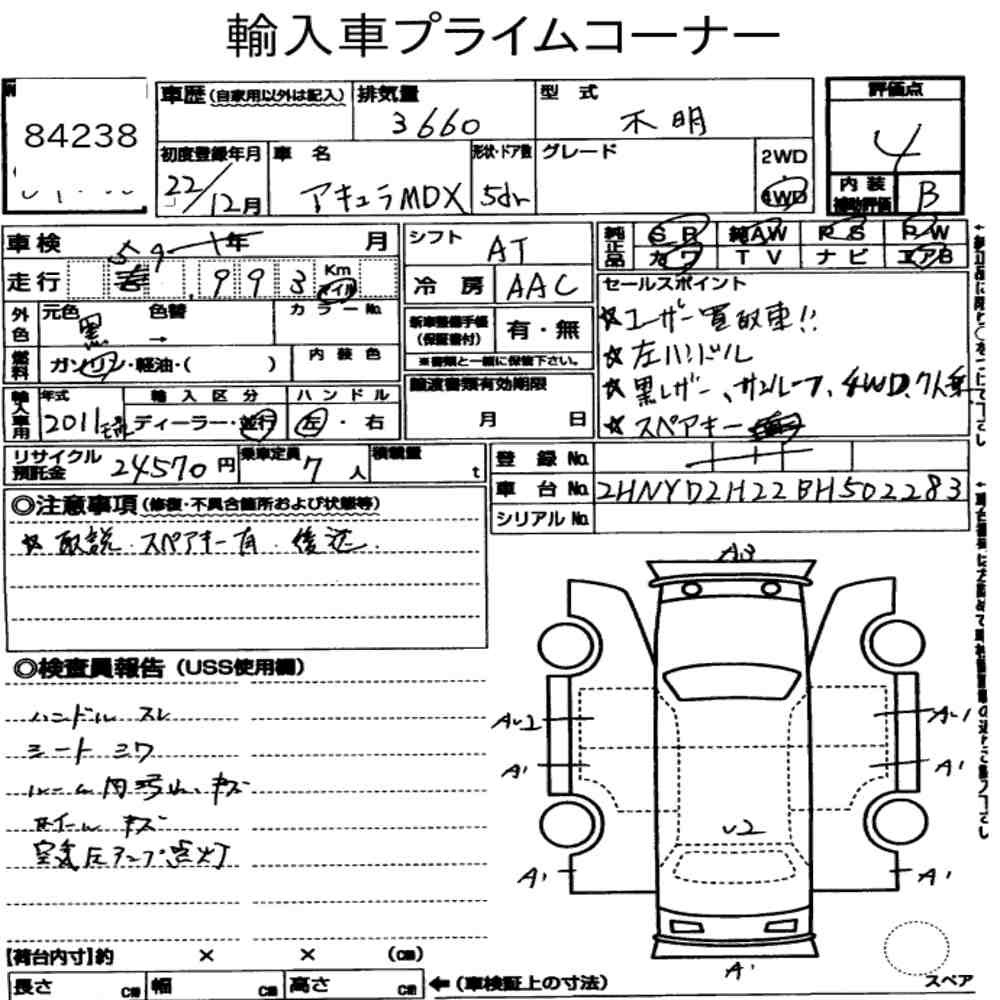 輸入車プライムコーナー
84238
車歴(自家用以外は記入) 排気量 3660 型式 不明 評価点 4
初度登録年月 22/12月 車名 アキュラMDX 形状・ドア数 5dr グレード 2WD 4WD 内装補助評価 B
車検 年 月 シフト AT 純正品 SR 純AW PS PW
走行 993 Km マイル 冷房 AAC カワ TV ナビ エアB
外色 元色 黒 色替 → カラーNo. 新車整備手帳(保証書付) 有・無 セールスポイント
燃料 ガソリン・軽油・( ) 内装色 ※書類と一緒に保管下さい。 ☆ユーザー買取車!!
輸入車用 年式 2011モデル 輸入区分 ディーラー・並行 ハンドル 左・右 譲渡書類有効期限 月 日 ☆左ハンドル
☆黒レザー、サンルーフ、4WD、7人乗
☆スペアキー
リサイクル預託金 24570円 乗車定員 7人 積載量 t 登録No.
車台No. 2HNYD2H22BH502283
シリアルNo.
◎注意事項(修復・不具合箇所および状態等)
☆取説・スペアキー有 後送
◎検査員報告(USS使用欄)
ハンドル スレ
シート シワ
ルーム内汚れ、キズ
ホイール キズ
空気圧ランプ点灯
A3
AU1 AU1
A1 A1
U2
A1 A1
A1
スペア
【荷台内寸】約 × × (cm)
長さ cm 幅 cm 高さ cm ←(車検証上の寸法)